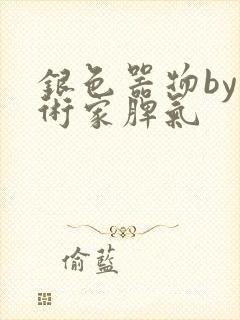 銀色器物by
術家脾氣
偷藍